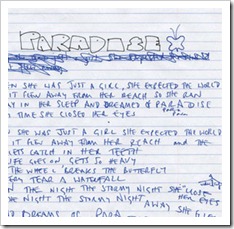 PARADISE
EN SHE WAS JUST A GIRL, SHE EXPECTED THE WORLD
IT FLEW AWAY FROM HER REACH SO SHE RAN
AY IN HER SLEEP AND DREAMED OF PARADISE
TIME SHE CLOSED HER EYES
SHE WAS JUST A GIRL SHE EXPECTED THE WORLD
IT FLEW AWAY FROM HER REACH AND THE
LETS CATCH IN HER TEETH
LIFE GOES ON GETS SO HEAVY
THE WHEEL BREAKS THE BUTTERFLY
RY TEAR A WATERFALL
IN THE NIGHT THE STORMY NIGHT SHE CLOSE
HE NIGHT THE STORMY NIGHT AWAY SHE
DREAMS OF PARA